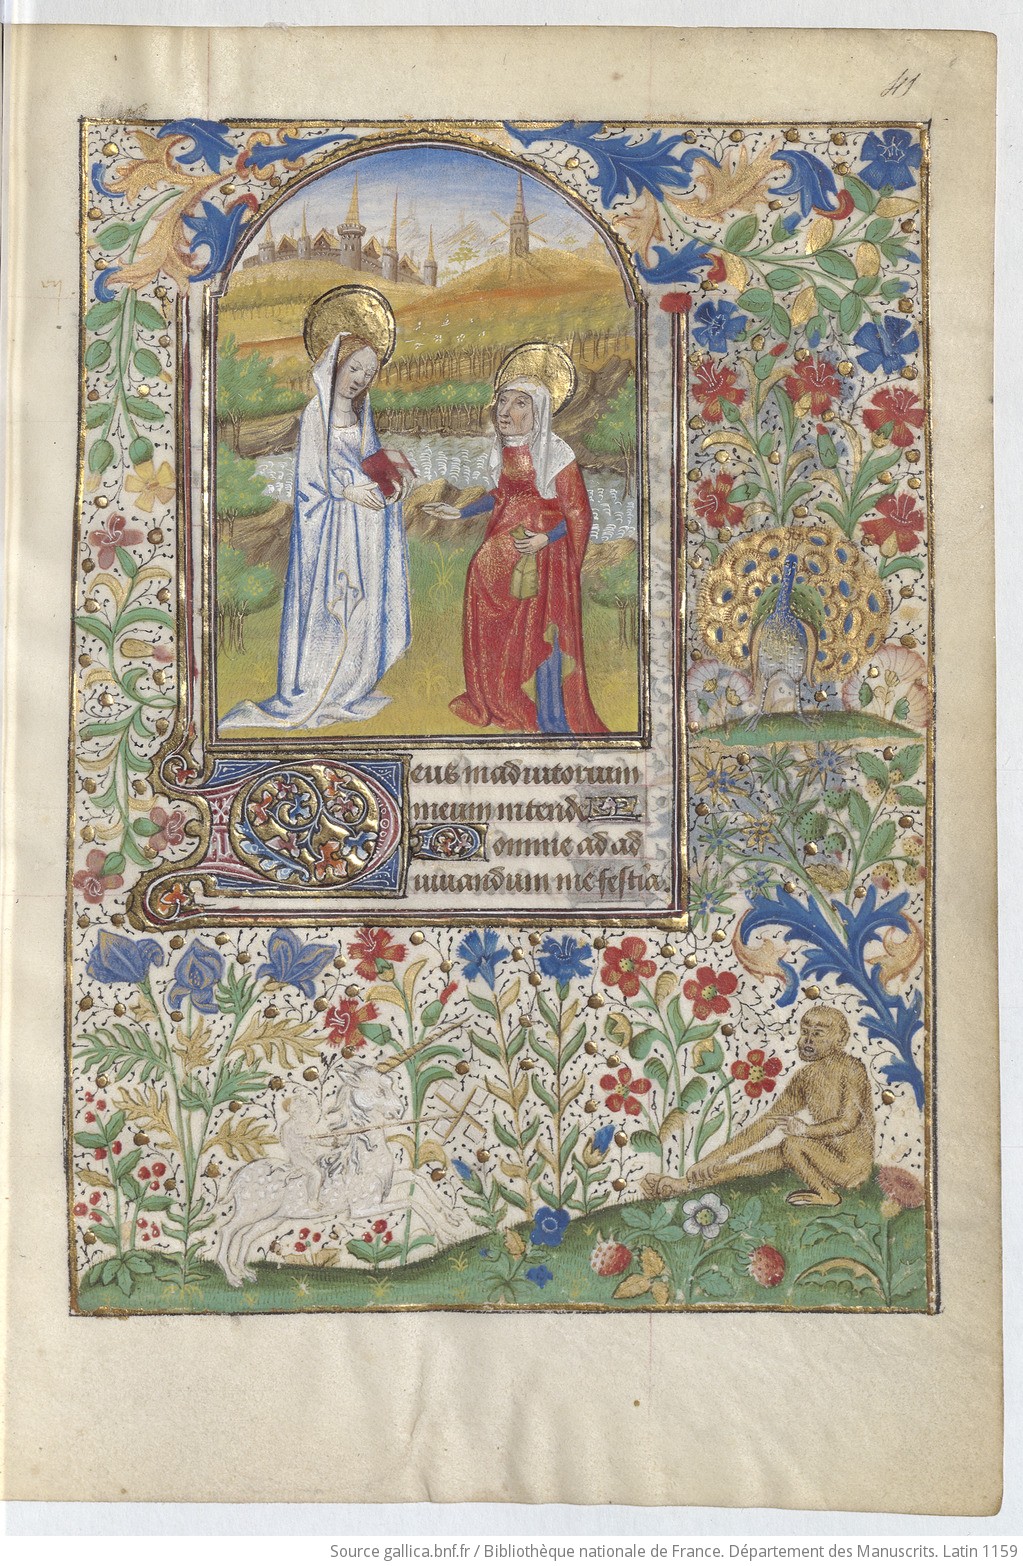 41
eus in adiutorium
meum intende
omine ad ad
iuuandum me festia.
Source gallica.bnf.fr / Bibliothèque nationale de France. Département des Manuscrits. Latin 1159